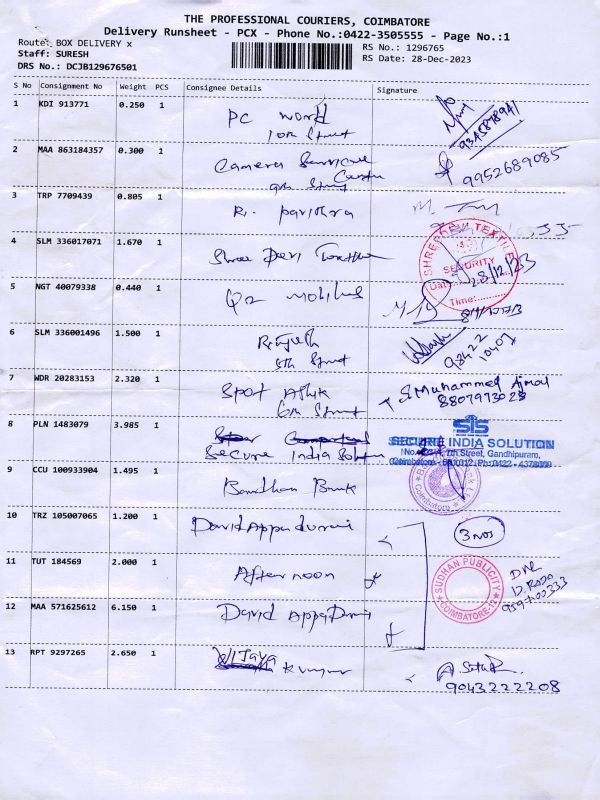 THE PROFESSIONAL COURIERS, COIMBATORE
Delivery Runsheet - PCX - Phone No.:0422-3505555 - Page No.:1
Route: BOX DELIVERY x
RS No.: 1296765
Staff: SURESH
RS Date: 28-Dec-2023
DRS No.: DCJB129676501
S No Consignment No Weight PCS Consignee Details Signature
1 KDI 913771 0.250 1 PC World
10th Street
2 MAA 863184357 0.300 1 Camera Service Center 9952689085
9th Street
3 TRP 7709439 0.805 1 R. pavithra
4 SLM 336017071 1.670 1 Shree Devi Textile
SHREE DEVI TEXTILE
SECURITY
Date: 28/12/23
Time:
5 NGT 40079338 0.440 1
6 SLM 336001496 1.500 1
5th Street
98422
10407
7 WDR 20283153 2.320 1 Spot S Muhammed Ajmal
6th Street 8807973023
8 PLN 1483079 3.985 1
Secure India Solution
SIS
SECURE INDIA SOLUTION
7th Street, Gandhipuram,
Coimbatore - Ph:0422 -
9 CCU 100933904 1.495 1 Bandhan Bank
Coimbatore
10 TRZ 105007065 1.200 1 David Appadurai 3 nos
11 TUT 184569 2.000 1 After noon
SUDHAN PUBLICITY
COIMBATORE-12
12 MAA 571625612 6.150 1 David Appadurai
13 RPT 9297265 2.650 1 Vijaya Kumar
9043222208